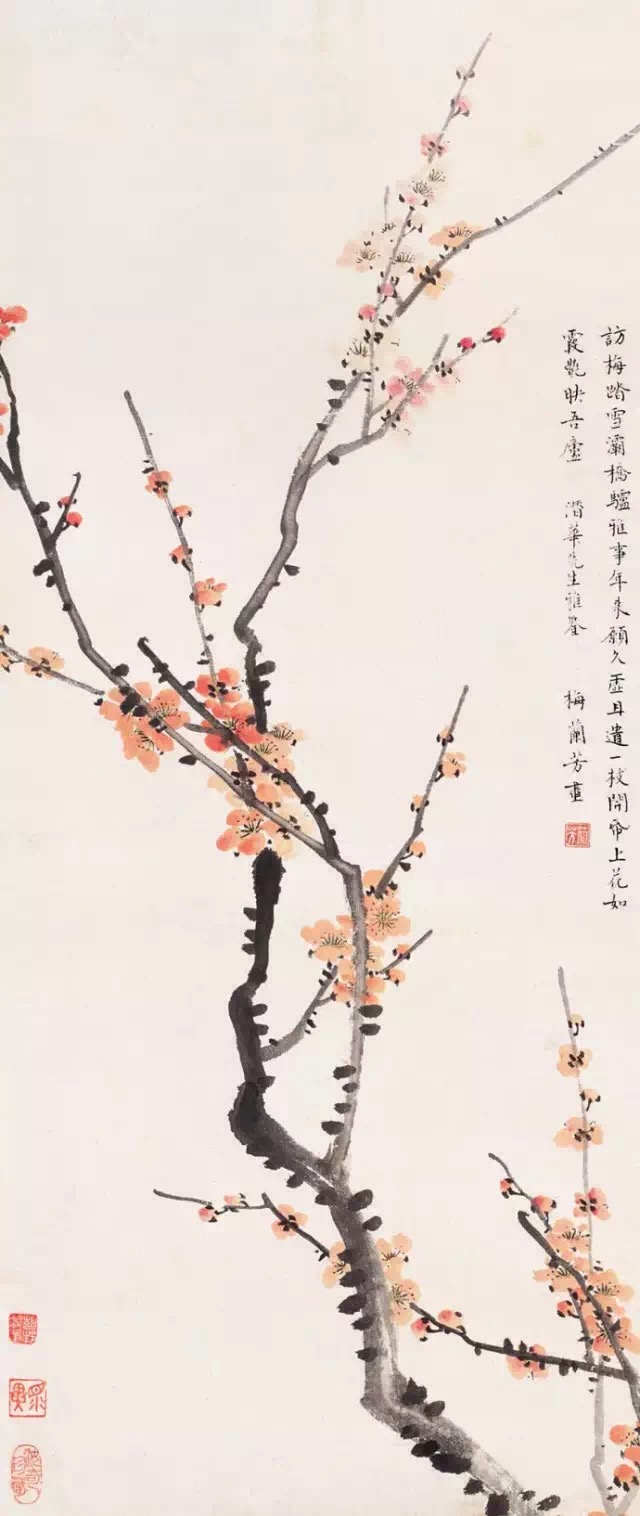 訪梅踏雪灞橋驢雅事年來願久虛且遣一枝開帋上花如
霞艷映吾廬　潛華先生雅鑒　梅蘭芳畫